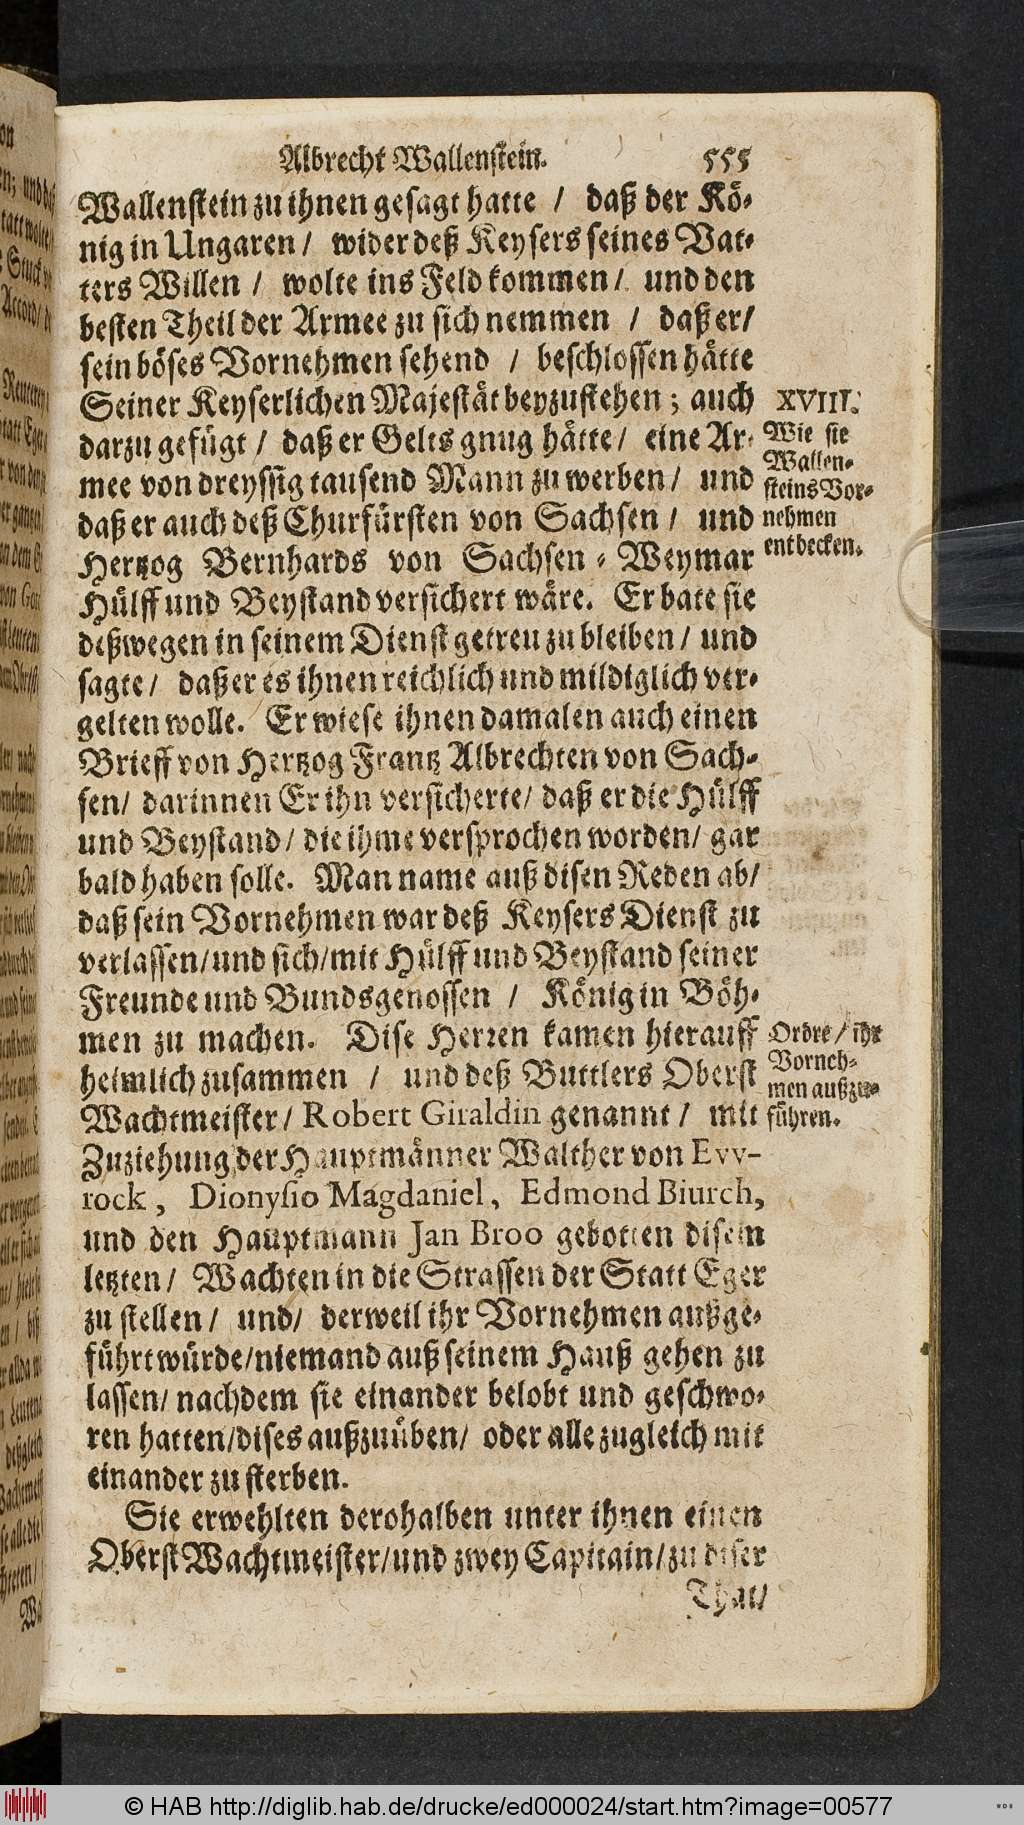 Albrecht Wallenstein. 555
Wallenstein zu ihnen gesagt hatte / daß der Kö-
nig in Ungaren / wider deß Keysers seines Vat-
ters Willen / wolte ins Feld kommen / und den
besten Theil der Armee zu sich nemmen / daß er /
sein böses Vornehmen sehend / beschlossen hätte
Seiner Keyserlichen Majestät beyzustehen; auch
darzu gefügt / daß er Gelts gnug hätte / eine Ar-
mee von dreyssig tausend Mann zu werben / und
daß er auch deß Churfürsten von Sachsen / und
Hertzog Bernhards von Sachsen-Weymar
Hülff und Beystand versichert wäre. Er bate sie
deßwegen in seinem Dienst getreu zu bleiben / und
sagte / daß er es ihnen reichlich und mildiglich ver-
gelten wolle. Er wiese ihnen damalen auch einen
Brieff von Hertzog Frantz Albrechten von Sach-
sen / darinnen Er ihn versicherte / daß er die Hülff
und Beystand / die ihme versprochen worden / gar
bald haben solle. Man name auß disen Reden ab /
daß sein Vornehmen war deß Keysers Dienst zu
verlassen / und sich / mit Hülff und Beystand seiner
Freunde und Bundsgenossen / König in Böh-
men zu machen. Dise Herren kamen hierauff
heimlich zusammen / und deß Buttlers Oberst
Wachtmeister / Robert Giraldin genannt / mit
Zuziehung der Hauptmänner Walther von Evv-
rock, Dionysio Magdaniel, Edmond Biurch,
und den Hauptmann Jan Broo gebotten disem
letzten / Wachten in die Strassen der Statt Eger
zu stellen / und / derweil ihr Vornehmen außge-
führt würde / niemand auß seinem Hauß gehen zu
lassen / nachdem sie einander belobt und geschwo-
ren hatten / dises außzuüben / oder alle zugleich mit
einander zu sterben.
Sie erwehlten derohalben unter ihnen einen
Oberst Wachtmeister / und zwey Capitain / zu diser
That /
XVIII.
Wie sie
Wallen-
steins Vor-
nehmen
entdecken.
Ordre / ihr
Vorneh-
men außzu-
führen.
© HAB http://diglib.hab.de/drucke/ed000024/start.htm?image=00577